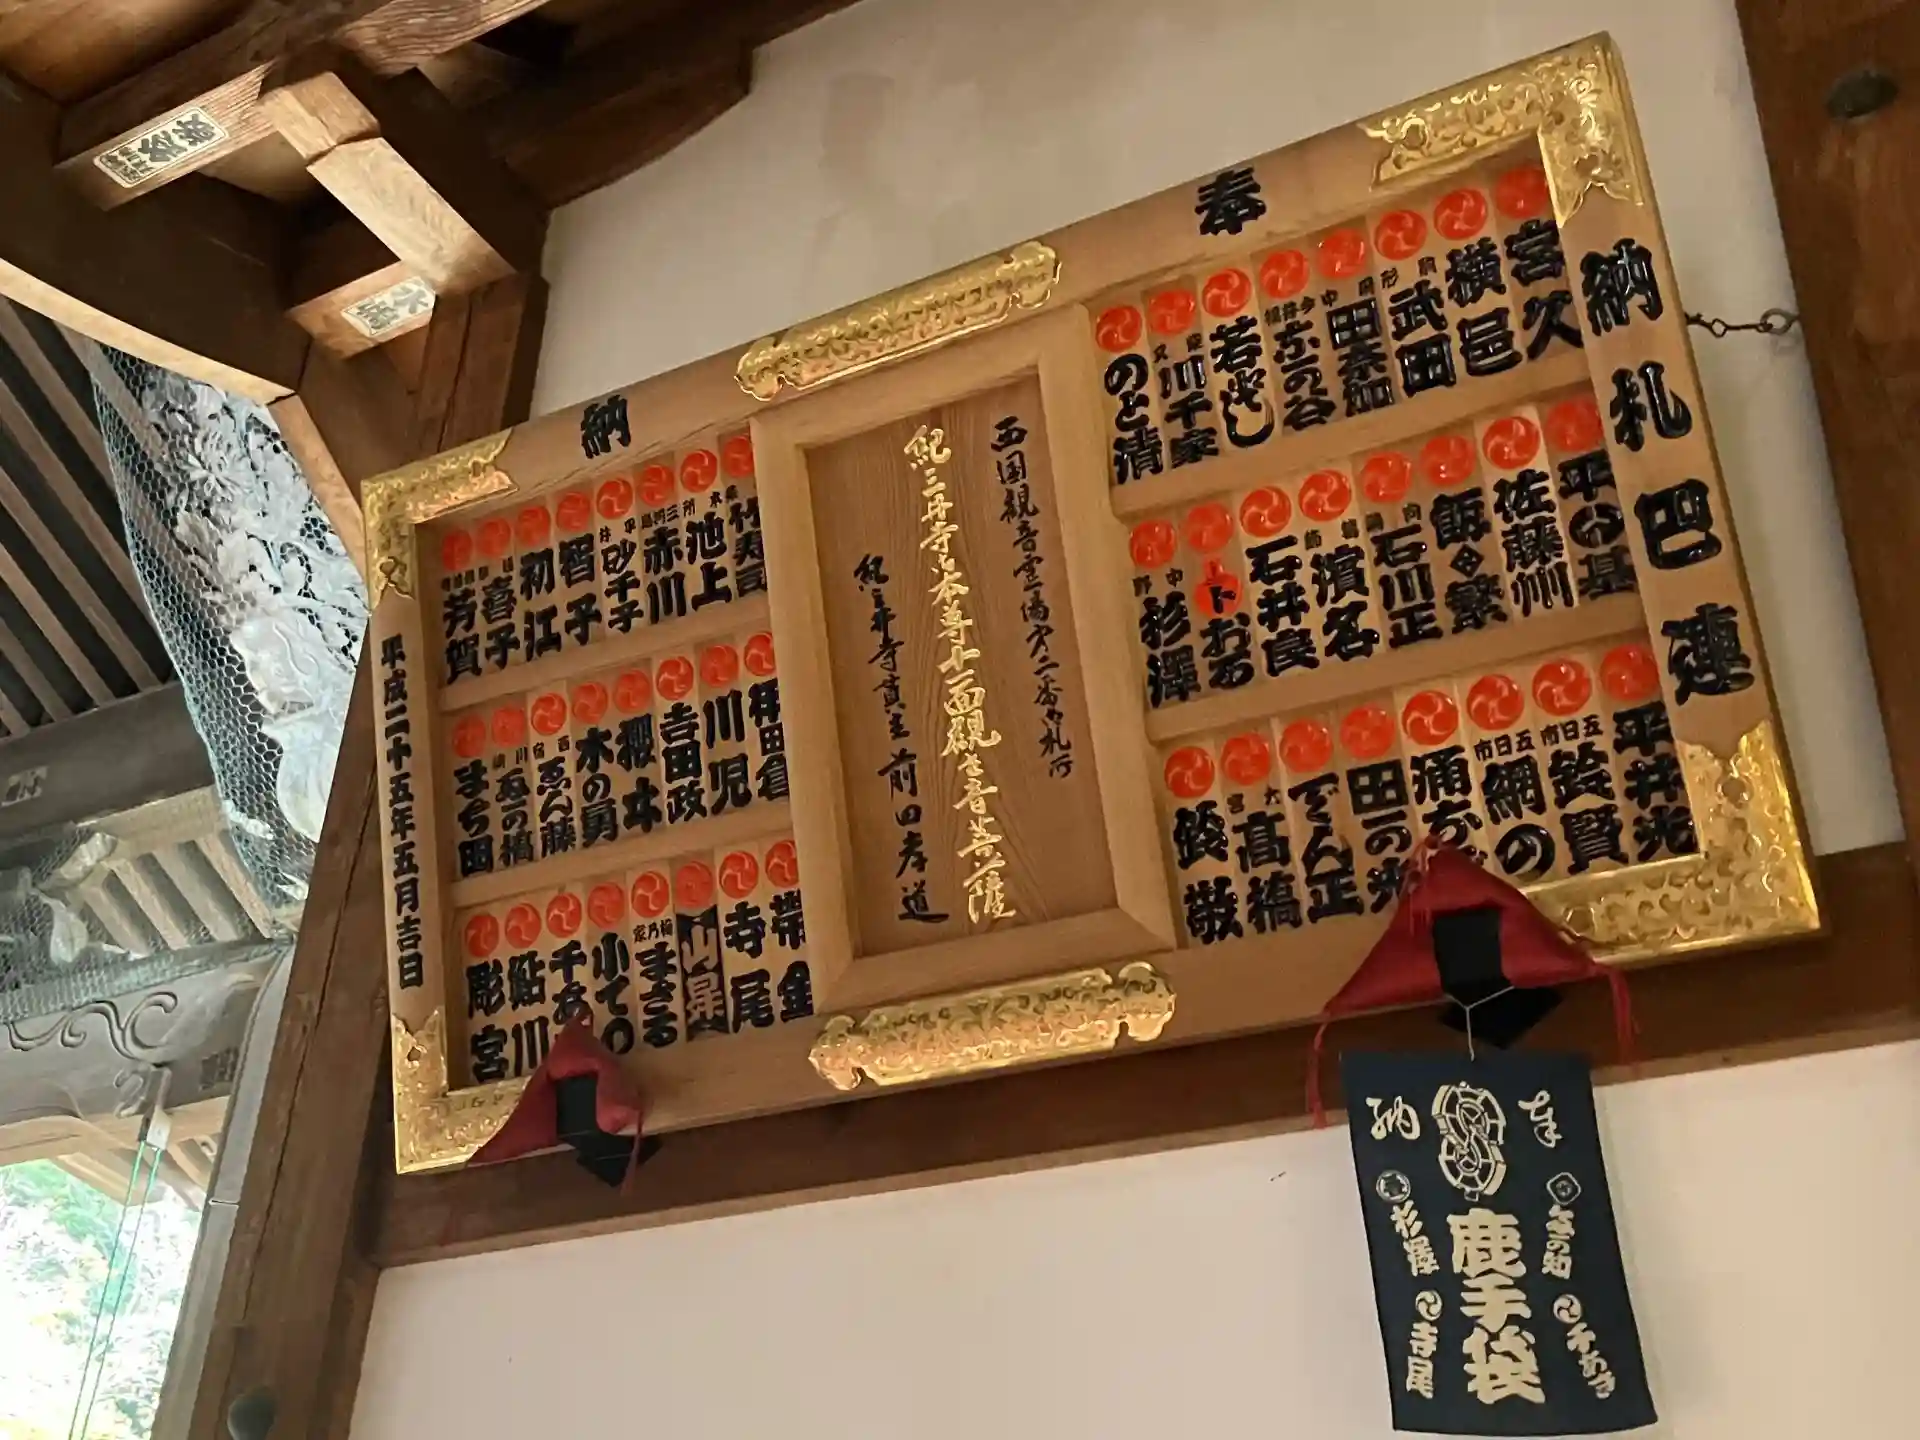 奉
納
納札巴連
宮久
横邑
扇形
武田
田奈加
今井組
ふの谷
若ばし
川千家
のと清
平の基
佐藤州
飯々繁
石川正
濱名
石井良
おる
中野
杉澤
平井光
五日市
鈴賢
五日市
網の
田の光
でん正
大宮
高橋
鈴敬
西国観音霊場第二番御札所
紀三井寺御本尊十一面観世音菩薩
紀三井寺貫主 前田孝道
竹寿司
池上
赤川
平井
砂千子
智子
初江
喜子
芳賀
伊田倉
川児
吉田政
櫻井
木の勇
ゑん藤
ゑの橋
まち田
帯金
寺尾
山昇
まさる
小て〇
鮎川
彫宮
平成二十五年五月吉日
奉
納
鹿手袋
千あき
杉澤
寺尾